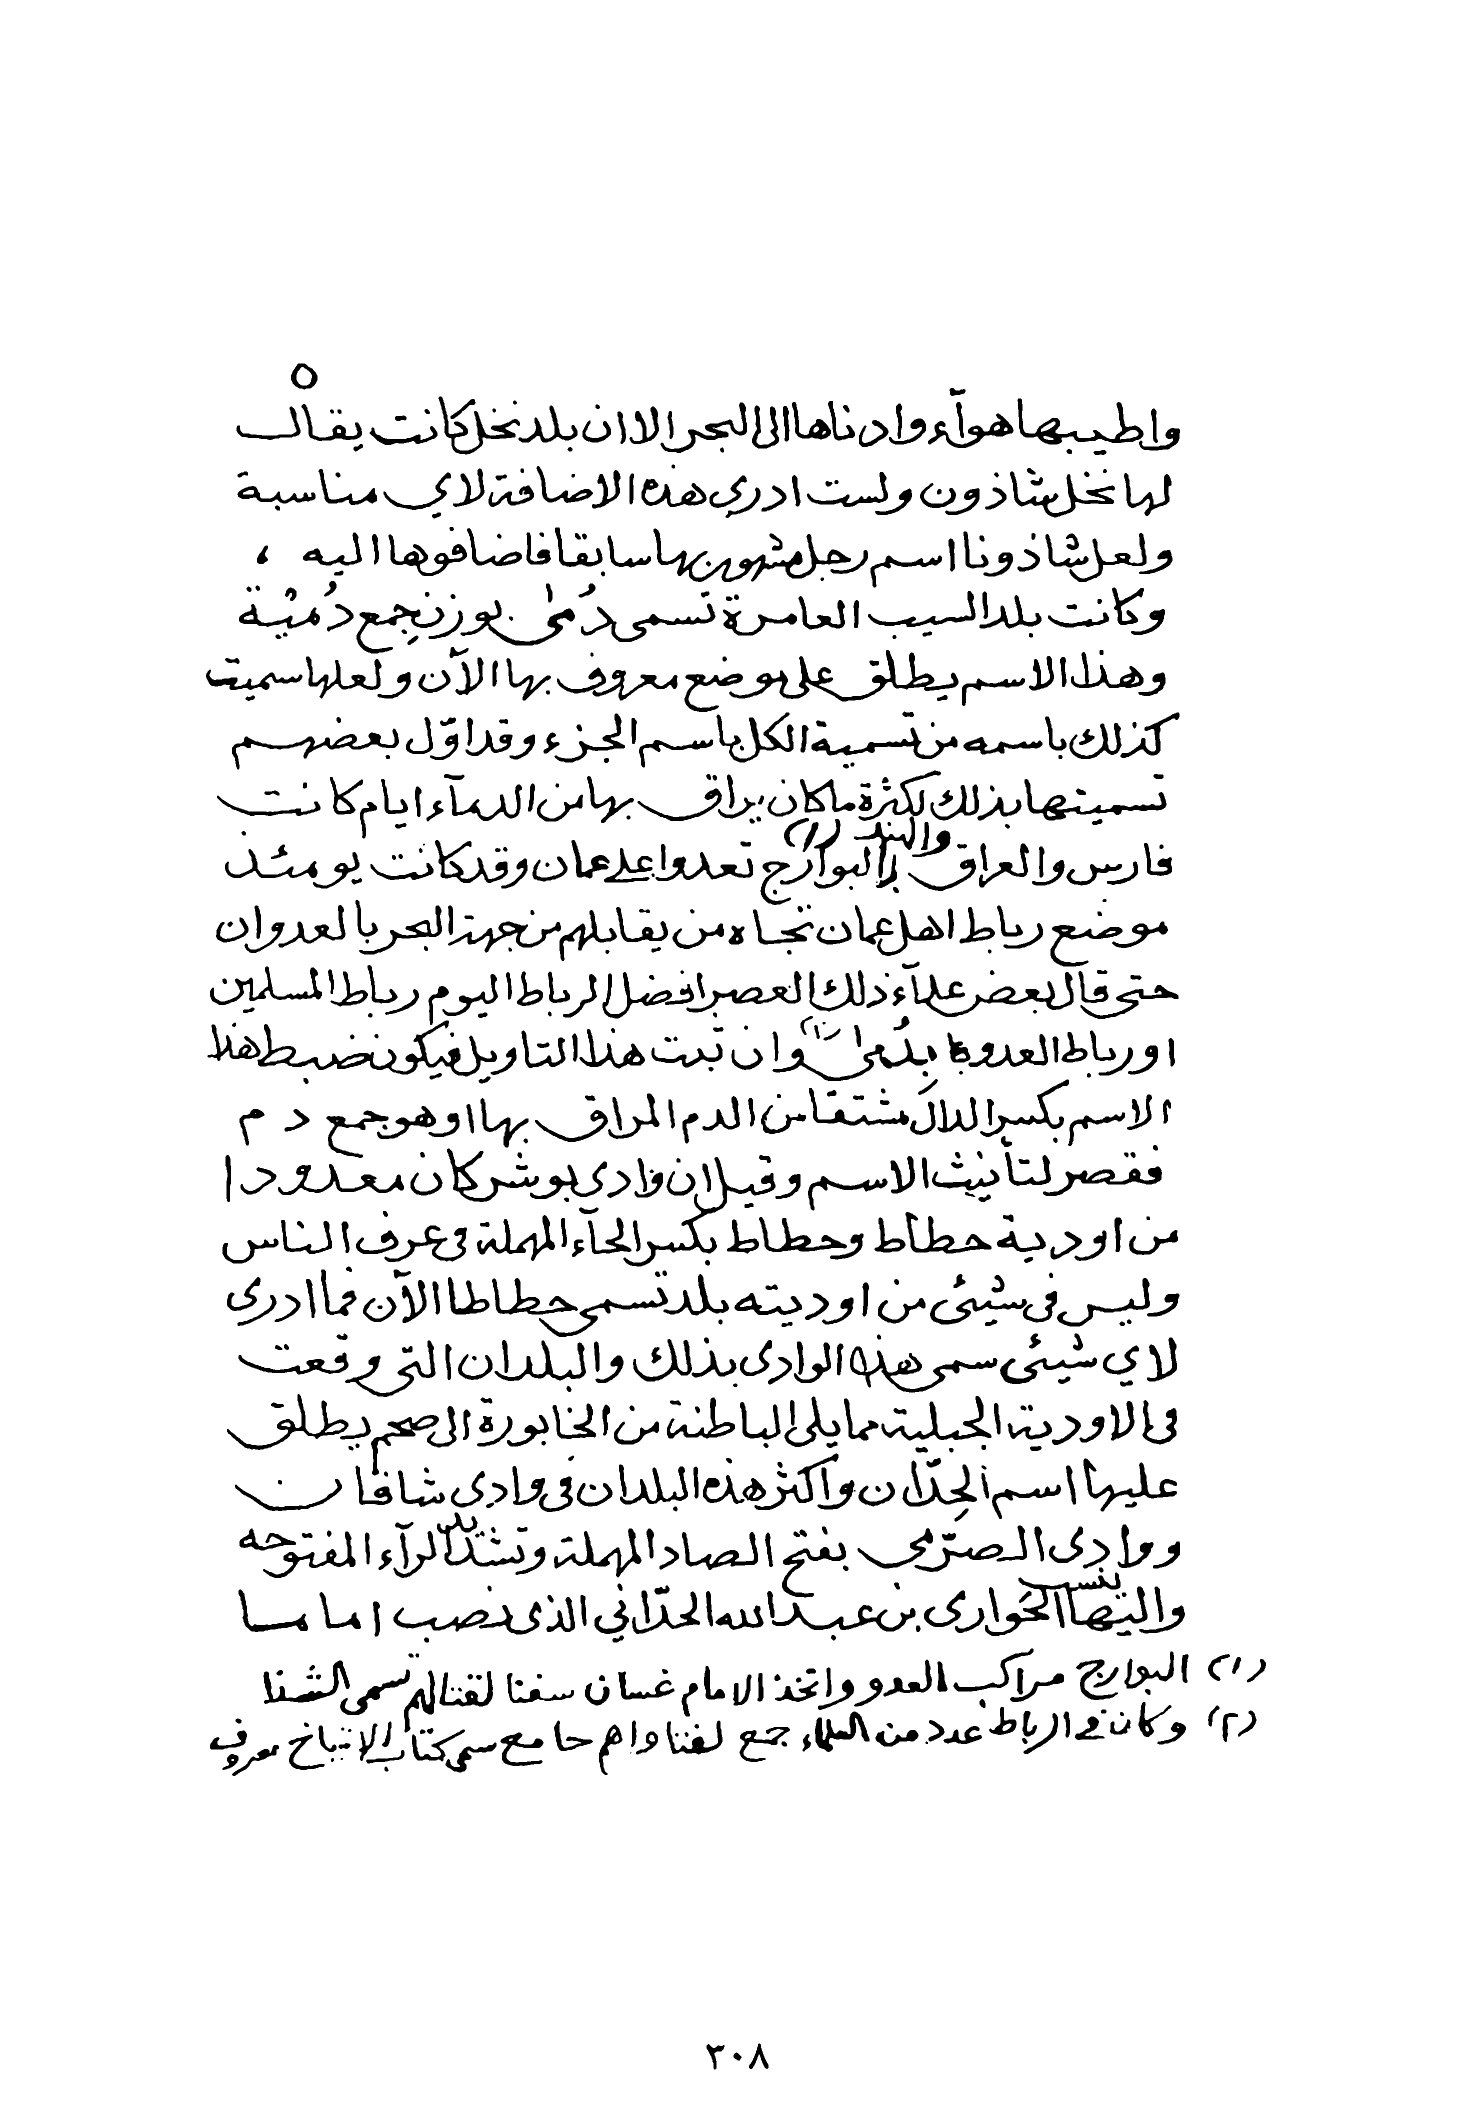 ٥
واطيبها هوآء وادناها الى البحر الا ان بلد نخل كانت يقال
لها نخل شاذون ولست ادري هذه الاضافة لاي مناسبة
ولعل شاذونا اسم رجل مشهور بها سابقا فاضافوها اليه ،
وكانت بلد السيب العامرة تسمى دُمىٰ بوزن جمع دُمْيَة
وهذا الاسم يطلق على موضع معروف بها الآن ولعلها سميت
كذلك باسمه من تسمية الكل باسم الجزء وقد اوّل بعضهم
تسميتها بذلك لكثرة ما كان يراق بها من الدمآء ايام كانت
فارس والعراق والهند بالبوارج (١) تعدوا على عمان وقد كانت يومئذ
موضع رباط اهل عمان تجاه من يقابلهم من جهة البحر بالعدوان
حتى قال بعض علمآء ذلك العصر افضل الرباط اليوم رباط المسلمين
او رباط العدو بدُمىٰ (٢) وان ثبت هذا التاويل فيكون ضبط هذا
الاسم بكسر الدال مشتقا من الدم المراق بها او هو جمع دم
فقصر لتأنيث الاسم وقيل ان وادى بوشر كان معدودا
من اودية حطاط وحطاط بكسر الحآء المهملة فى عرف الناس
وليس فى شيئى من اوديته بلد تسمى حطاطا الآن فما ادرى
لاي شيئى سمى هذا الوادى بذلك والبلدان التى وقعت
فى الاودية الجبلية مما يلى الباطنة من الخابورة الى صحم يطلق
عليها اسم الحِدّان واكثر هذه البلدان فى وادى شافان
ووادى الصرّمي بفتح الصاد المهملة وتشديد الرآء المفتوحه
واليها ينسب الحَوارى بن عبد الله الحدّاني الذى نصب اماما
(١) البوارج مراكب العدو واتخذ الامام غسان سفنا لقتالهم تسمى الشذا
(٢) وكان فى الرباط عدد من العلماء جمع لفتاواهم جامع سمى كتاب الاشياخ معروف
٣٠٨